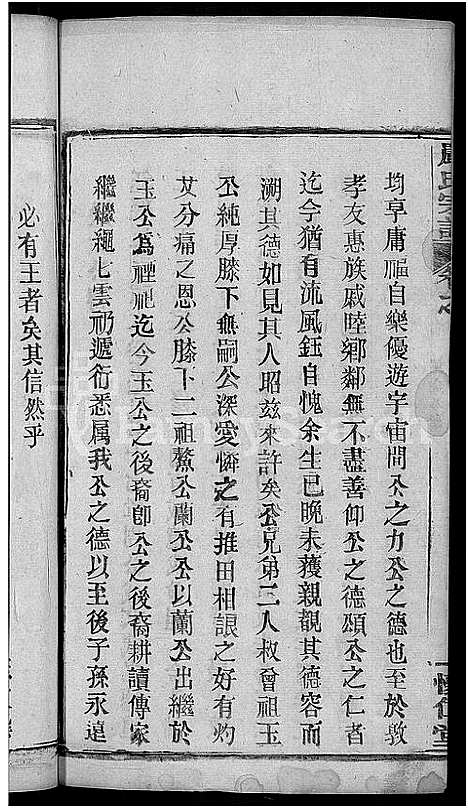 均享庸福自樂優遊宇宙間公之力公之德也至於敦
孝友惠族戚睦鄉鄰無不盡善仰公之德頌公之仁者
迄今猶有流風鈺自愧余生已晚未獲親覩其德容而
溯其德如見其人昭兹來許矣公兄弟三人叔會祖玉
公純厚膝下無嗣公深愛憐之有推田相讓之好有灼
艾分痛之恩公膝下二祖鰲公蘭公公以蘭公出繼於
玉公為禋祀迄今玉公之後裔卽公之後裔耕讀傳家
繼繼繩七雲礽遞衍悉属我公之德以至後子孫永遠
必有王者矣其信然乎